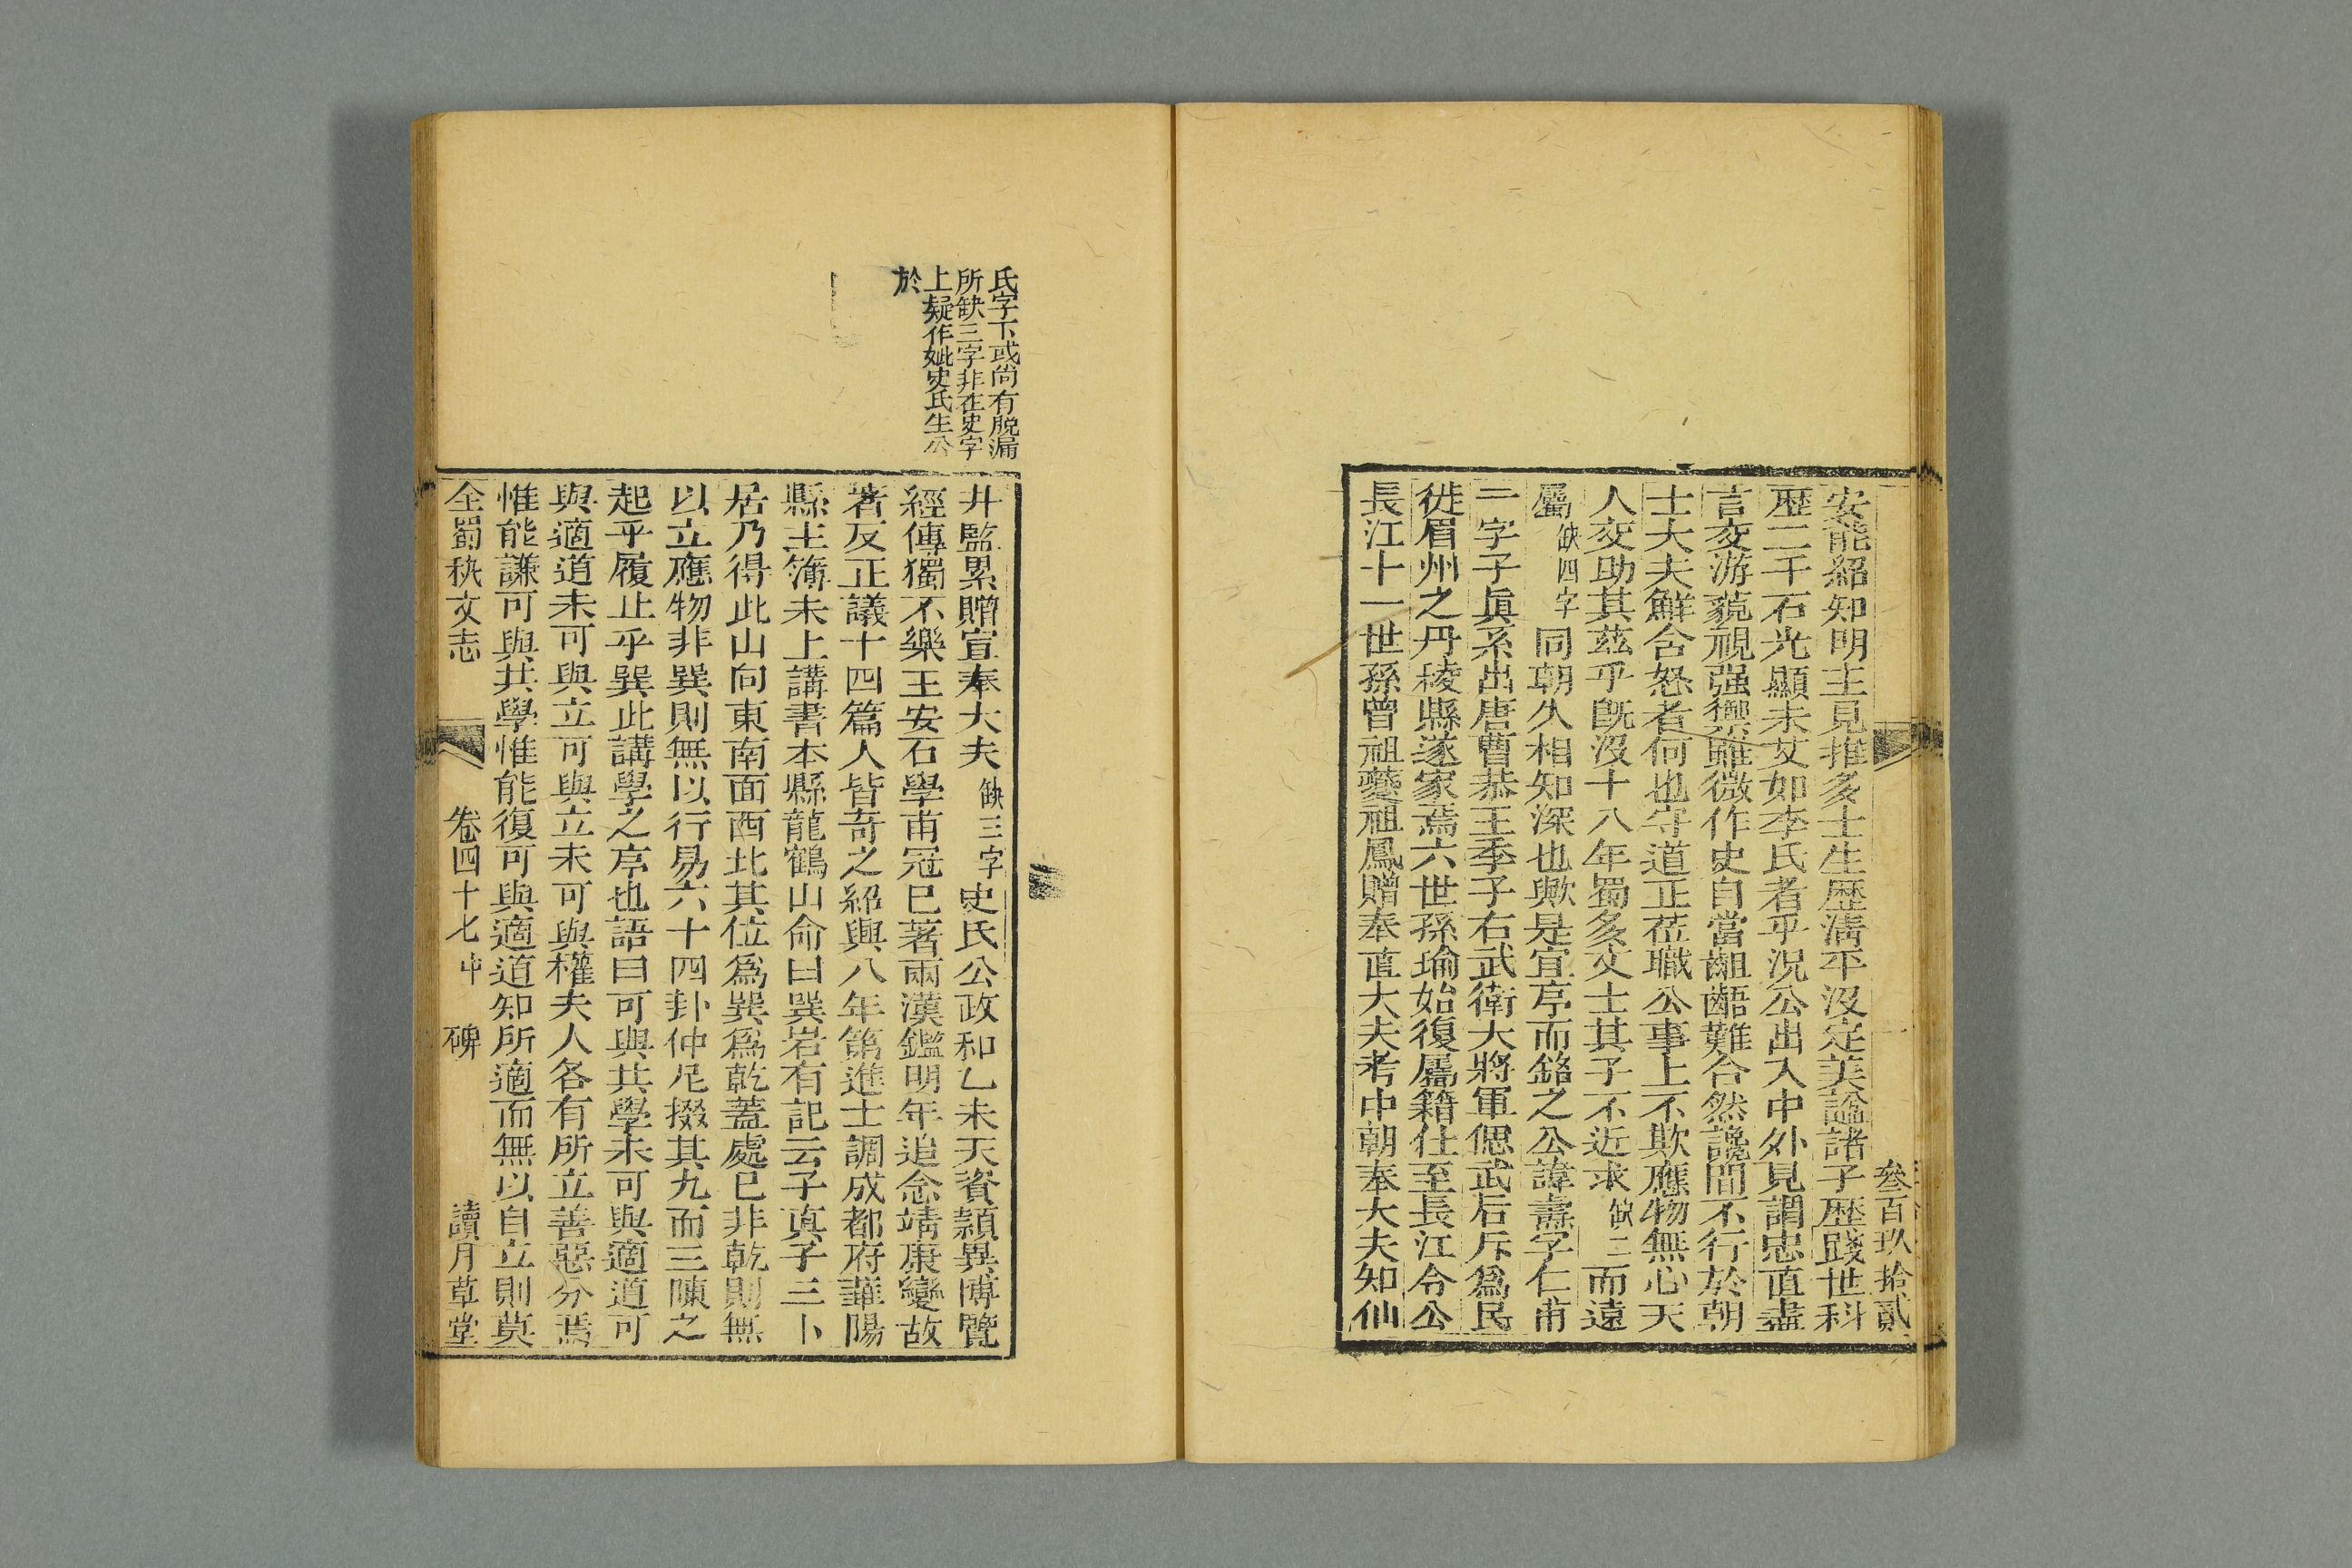 叄百玖拾貳
安能紹知明主見推多士生歷淸平沒定美諡諸子歷踐世科
歷二千石光顯未艾如李氏者乎況公出入中外見謂忠直盡
言交游藐視强禦雖微作史自當齟齬難合然讒間不行於朝
士大夫鮮含怒者何也守道正莅職公事上不欺應物無心天
人交助其茲乎旣沒十八年蜀多文士其子不近求缺二而遠
屬缺四字同朝久相知深也歟是宜序而銘之公諱燾字仁甫
一字子眞系出唐曹恭王季子右武衛大將軍偲武后斥爲民
徙眉州之丹稜縣遂家焉六世孫瑜始復屬籍仕至長江令公
長江十一世孫曾祖夔祖鳳贈奉直大夫考中朝奉大夫知仙
氏字下或尚有脫漏
所缺三字非在史字
上疑作妣史氏生公
於
井監累贈宣奉大夫缺三字史氏公政和乙未天資穎異博覽
經傳獨不樂王安石學甫冠已著兩漢鑑明年追念靖康變故
著反正議十四篇人皆奇之紹興八年第進士調成都府華陽
縣主簿未上講書本縣龍鶴山命曰巽岩有記云子眞子三卜
居乃得此山向東南面西北其位爲巽爲乾蓋處已非乾則無
以立應物非巽則無以行易六十四卦仲尼掇其九而三陳之
起乎履止乎巽此講學之序也語曰可與共學未可與適道可
與適道未可與立可與立未可與權夫人各有所立善惡分焉
惟能謙可與共學惟能復可與適道知所適而無以自立則莫
全蜀秇文志 卷四十七中 碑 讀月草堂